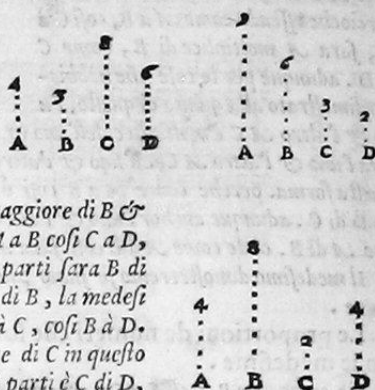 4 3 8 6
A B C D
9 6 3 2
A B C D
aggiore di B &
a B coſi C a D,
parti ſara B di
di B, la medeſi
à C, coſi B à D.
e di C in queſto
parti è C di D,
4 8 2 4
A B C D